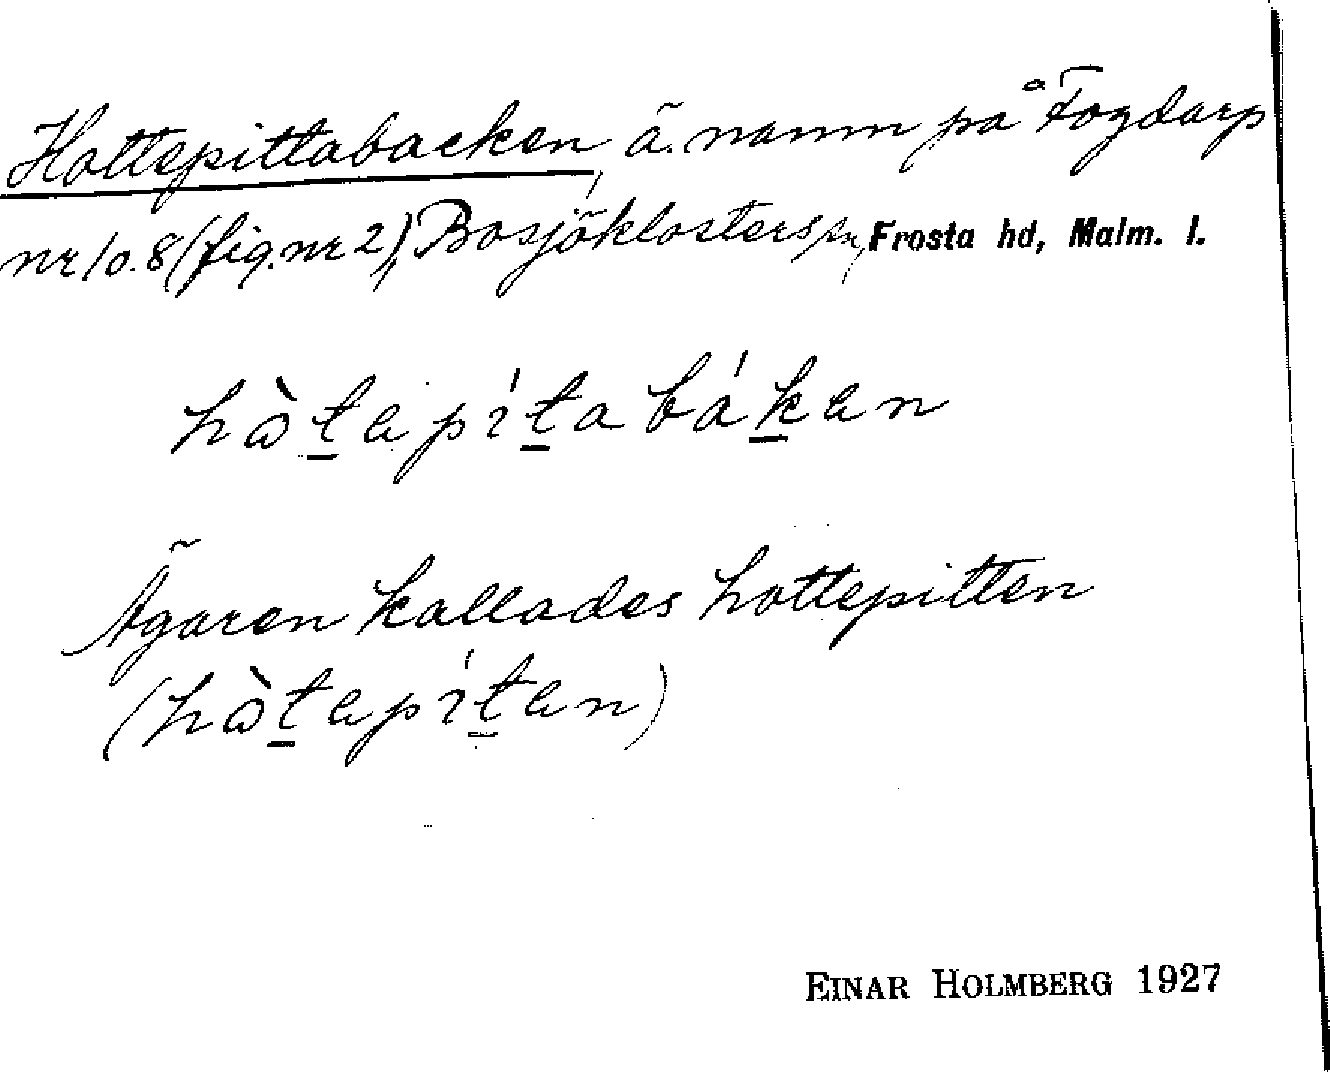 Hottepittabacken, ä. namn på Fogdarp
nr 10.8 (fig. nr 2), Bosjöklosters sn, Frosta hd, Malm. l.
hɷ̀t̲ep⍳́t̲abák̲en
Ägaren kallades hottepitten
(hɷ̀t̲ep⍳́t̲en)
EINAR HOLMBERG 1927